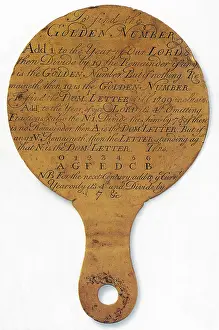 To find the
GOLDEN NUMBER
Add 1 to the Year of Our LORD
then Divide by 19 the Remainder if any
is the GOLDEN Number But if nothing
remaineth then 19 is the GOLDEN NUMBER
To find the DOM LETTER till 1799
Add to the Year of our LORD its 4th Omitting
Fractions the N 1 Divide by 7 & if there
is no Remainder then A is the DOM LETTER But if
any N Remaineth then the LETTER standing
that N is the DOM LETTER Thus
0 1 2 3 4 5 6
A G F E D C B
NB For the next Century add to ye Current
Year only its 4th and Divide by
7 &c